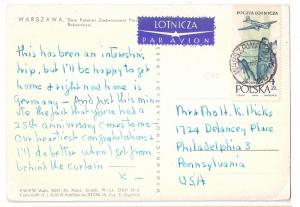 WARSZAWA, Dom Polskiej Zjednoczonej Partii Robotniczej
LOTNICZA
PAR AVION
POCZTA LOTNICZA
WARSZAWA
POLSKA
this has been an interesting
trip, but I'll be happy to get
home & right now home is
Germany - And just this minute
the fact that you've had a
25th anniversary comes to me -
Our heartiest congratulations &
I'll do better when I get from
behind the curtain -
K -
Mr & Mrs H. K. Hicks
1724 Delancey Place
Philadelphia 3
Pennsylvania
U.S.A